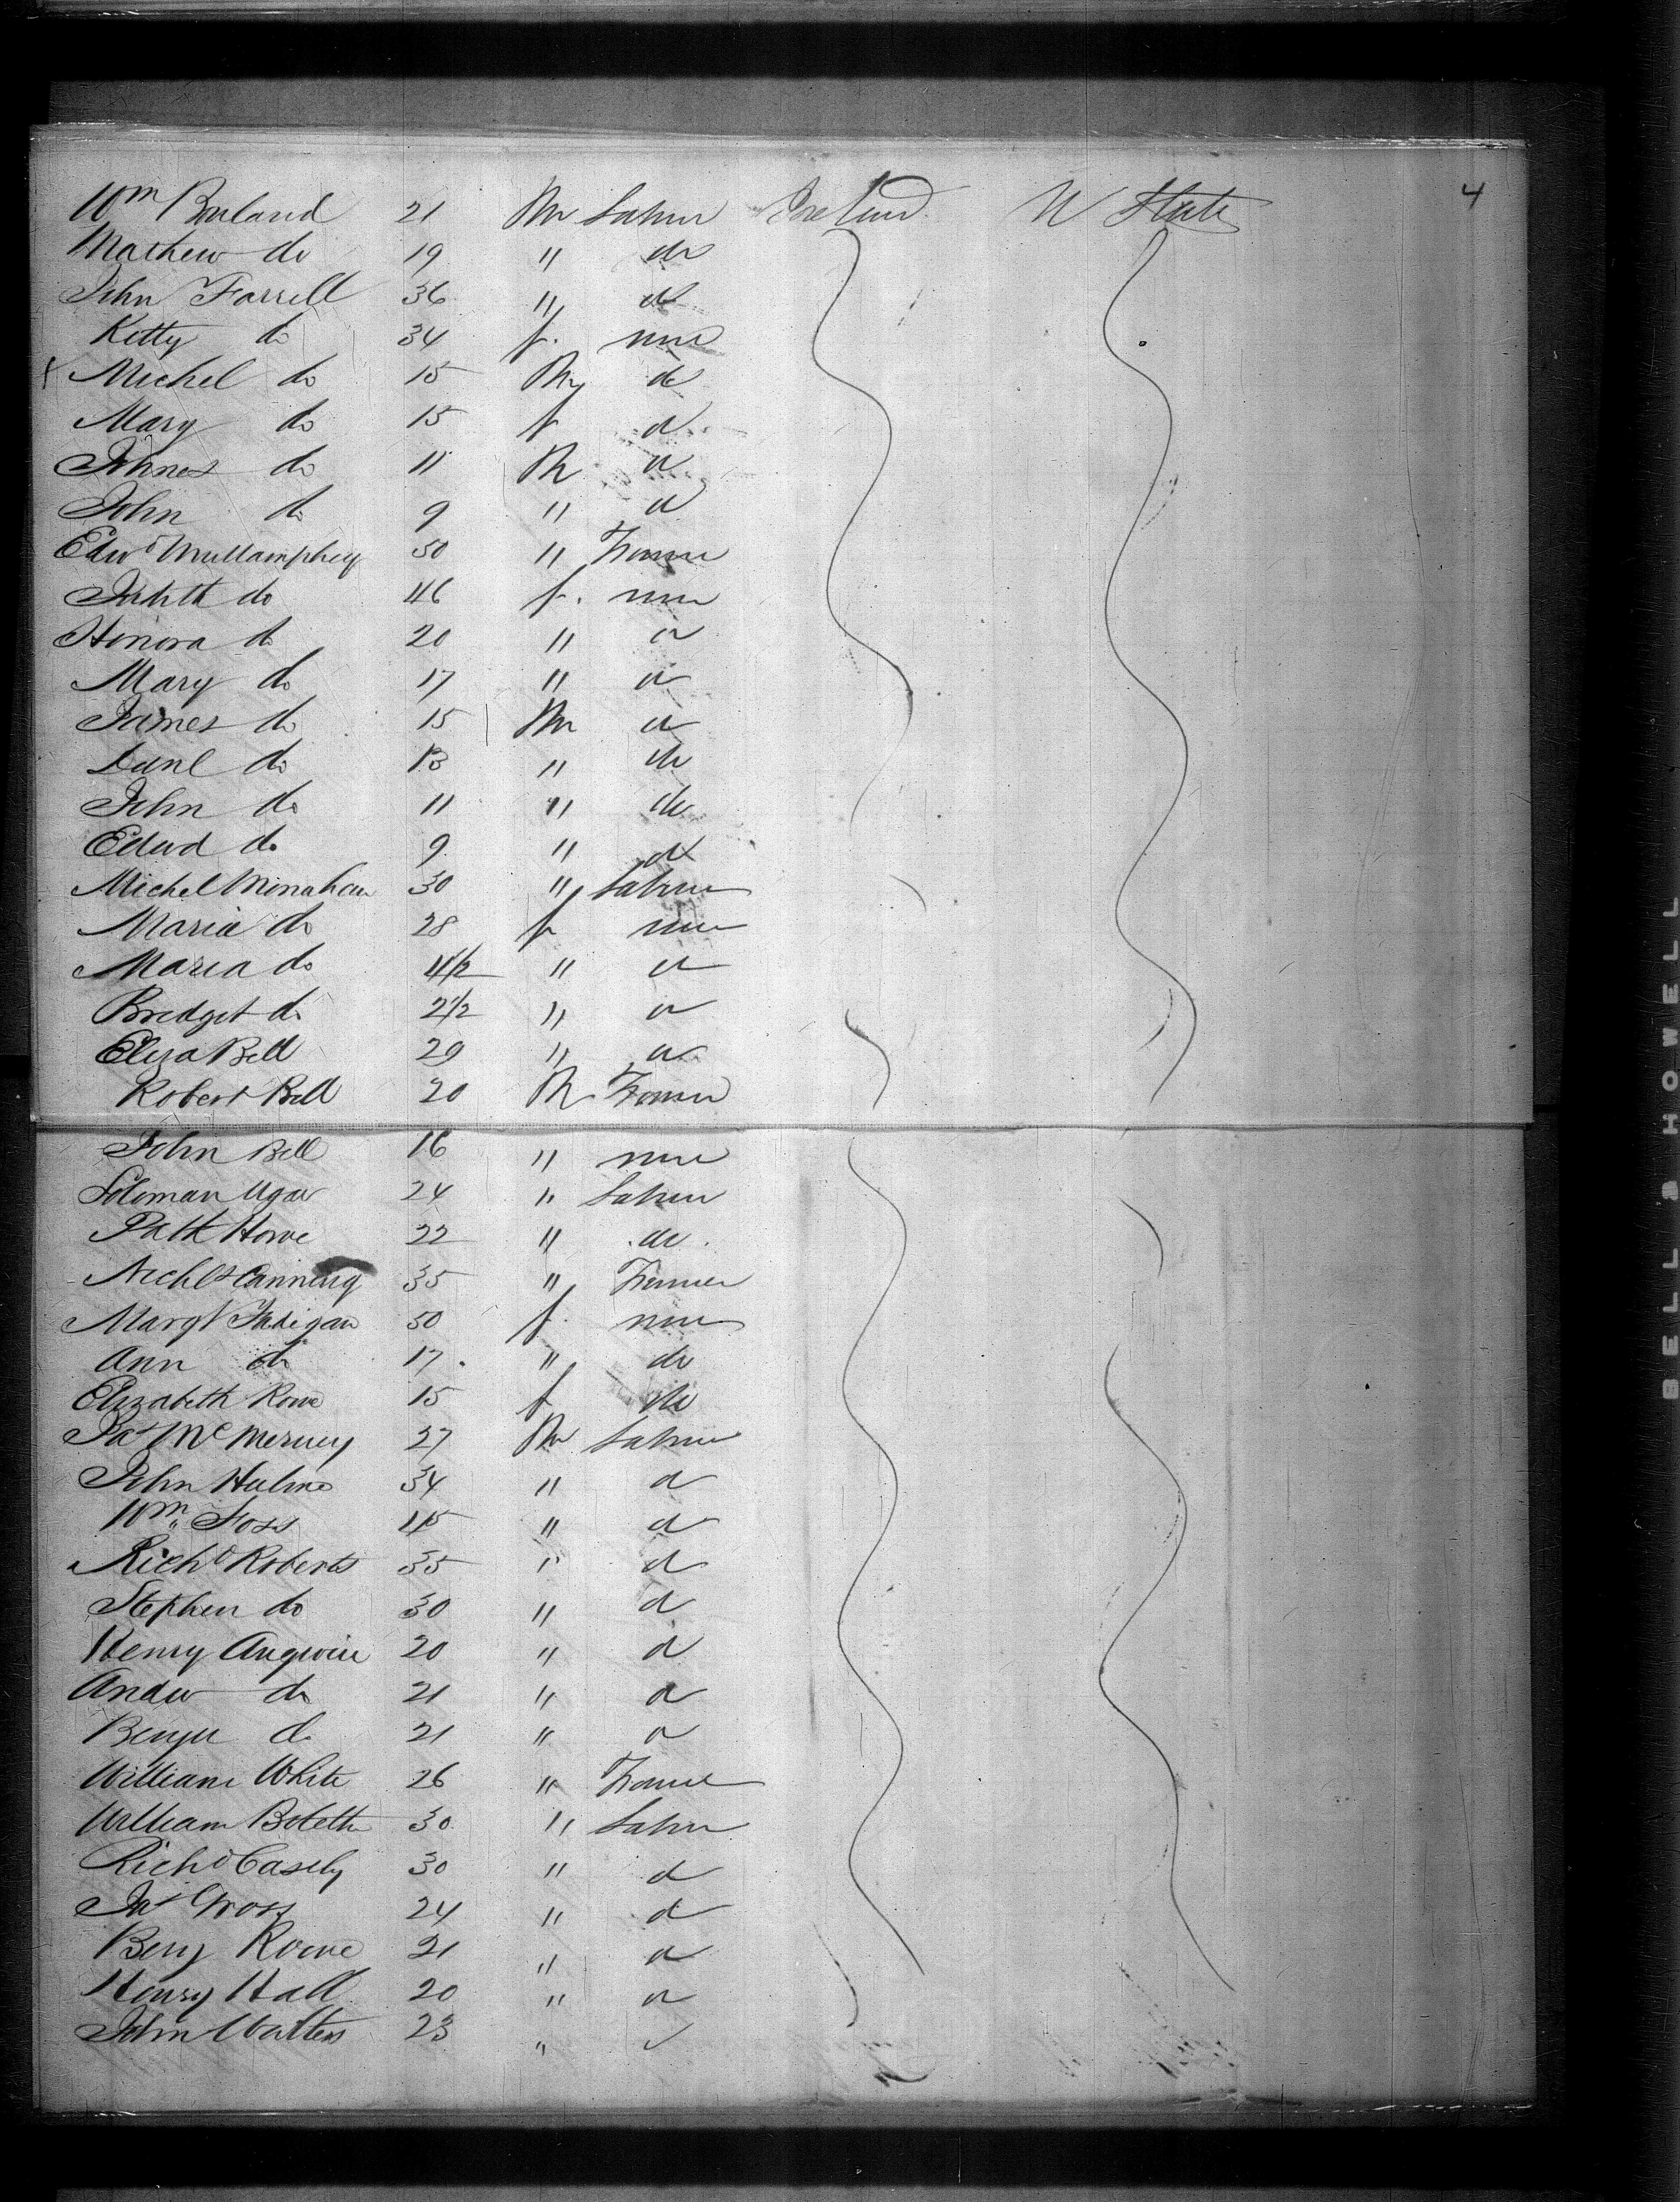 4
Wm Borland 21 M Labrer Ireland U State
Mathew do 19 " do
John Farrell 36 " do
Kitty do 34 f. none
Michel do 15 M do
Mary do 15 f do
James do 11 M do
John do 9 " do
Edwd Mullamphey 50 " Farmer
Judith do 46 f. none
Honora do 20 " do
Mary do 17 " do
James do 15 M do
Danl do 13 " do
John do 11 " do
Edwd do 9 " do
Michel Minahan 30 " Labrer
Maria do 28 f none
Maria do 4 1/2 " do
Bridget do 2 1/2 " do
Eliza Bell 29 " do
Robert Bell 20 M Farmer
John Bell 16 " none
Soloman 24 " Labrer
Patk Howe 22 " do
Nichls Canning 35 " Farmer
Margt Fadigan 50 f. none
Ann do 17 " do
Elizabeth Rowe 15 f do
Pat Mc 27 M Labrer
John Hulme 34 " do
Wm Foss 45 " do
Richd Roberts 35 " do
Stephen do 30 " do
Henry Angwin 20 " do
Andw do 21 " do
Benjn do 21 " do
William White 26 " Farmer
William 30 " Labrer
Richd Casely 30 " do
Jas Gross 24 " do
Benj Rowe 21 " do
Henry Hall 20 " do
John Walters 23 "
BELL & HOWELL